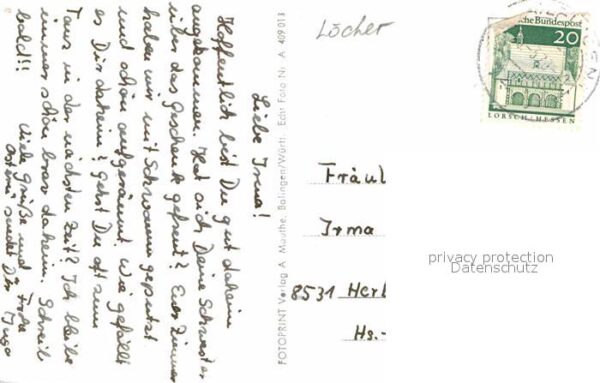 Liebe Irma!
Hoffentlich bist Du gut daheim
angekommen. Hat sich Deine Schwester
über das Geschenk gefreut? Euer Zimmer
haben wir mit Schwamm geputzt
und schön aufgeräumt. Wie gefällt
es Dir daheim? Gehst Du oft zum
Tanz in der nächsten Zeit? Ich bleibe
immer schön brav daheim. Schreib
bald!!
Viele Grüße und Frohe
Ostern sendet Dir Inge
FOTOPRINT Verlag A. Mauthe, Balingen/Württ. Echt Foto Nr. A 409.013
Löcher
che Bundespost
20
LORSCH/HESSEN
Fräul
Irma
8531 Herb
Hs.-
privacy protection
Datenschutz